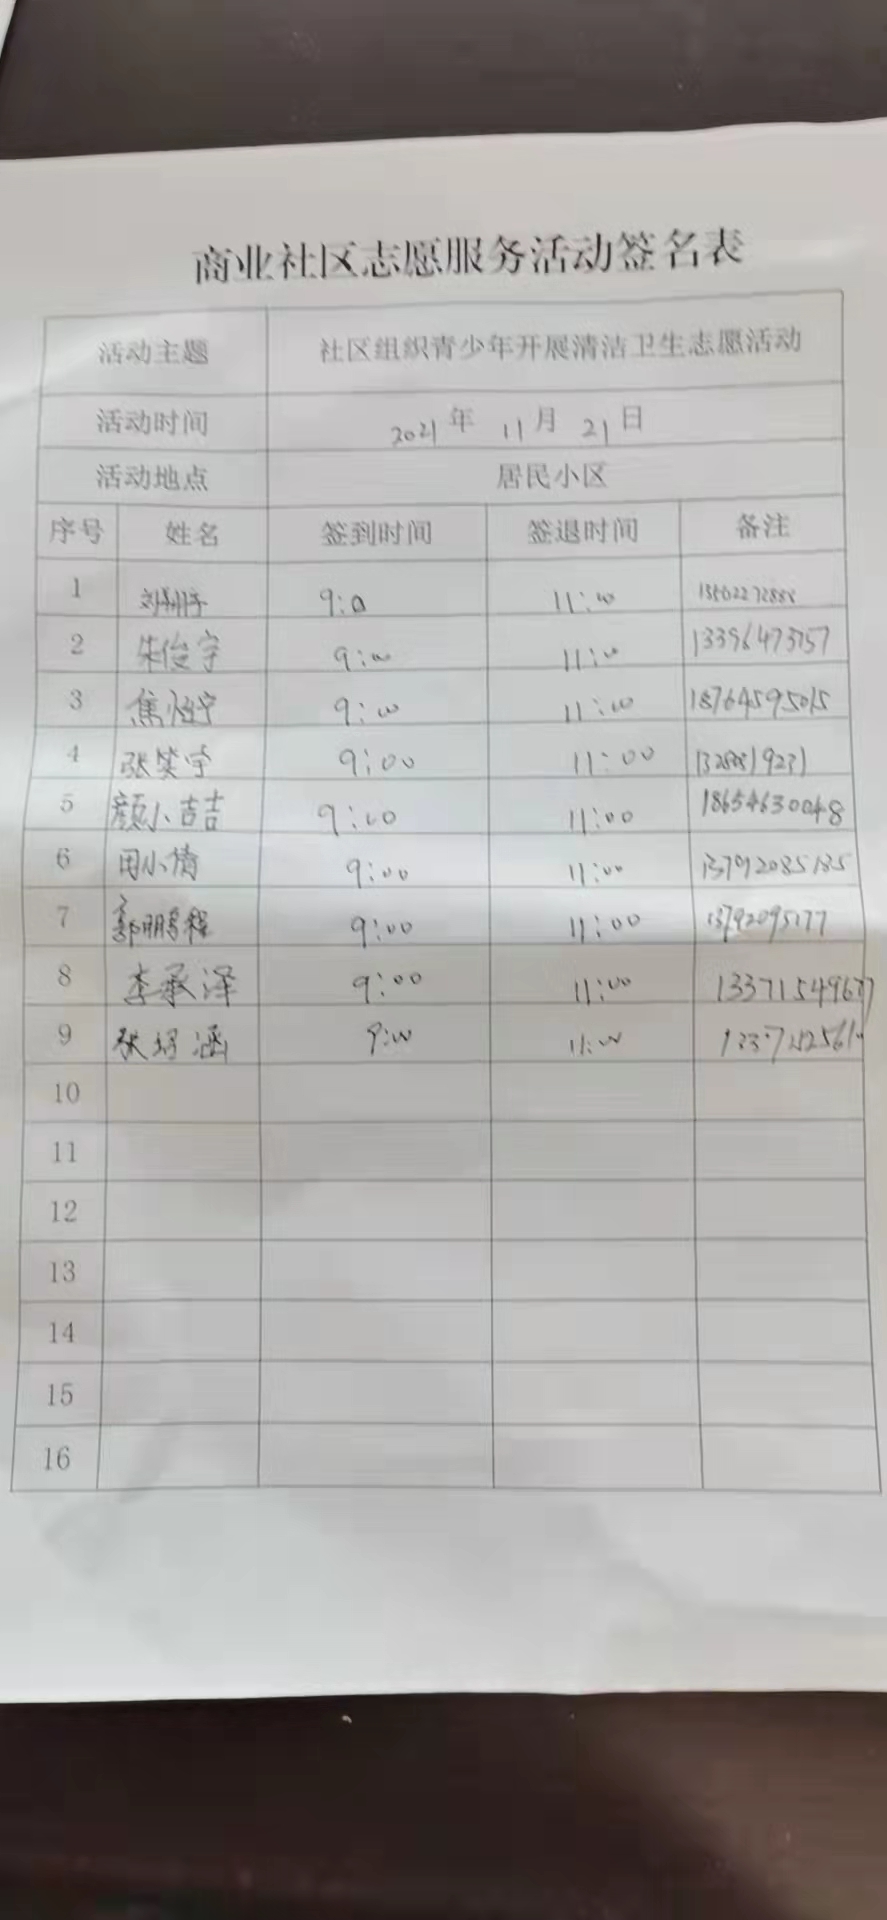 商业社区志愿服务活动签名表
活动主题 社区组织青少年开展清洁卫生志愿活动
活动时间 2021年 11月 21日
活动地点 居民小区
序号 姓名 签到时间 签退时间 备注
1 11:00
2 朱俊宇 9:00 11:00
3 9:00 11:00 18764595015
4 张笑宇 9:00 11:00
5 颜小喆 9:00 11:00 18654630048
6 田小倩 9:00 11:00 13792085185
7 郭鹏程 9:00 11:00
8 李承泽 9:00 11:00
9 9:00 11:00
10
11
12
13
14
15
16